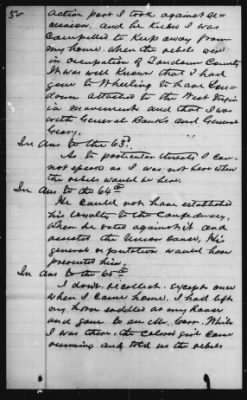 50
action part I took against se-
cession. and he knew I was
compelled to keep away from
my home when the rebels were
in occupation of Loudoun County
It was well known that I had
gone to Wheeling to have Lou-
doun attached to the West Virgin
ia movement and that I was
with General Banks and General
Geary.
In Ans to the 63d.
As to particular threats I can-
not speak as I was not here when
the rebels would be here.
In Ans to the 64th
He could not have established
his loyalty to the Confederacy,
when he voted against it and
assisted the Union cause. His
general reputation would have
prevented him.
In Ans to the 65th
I don't recollect. except once
when I came home. I had left
my horse saddled at my house
and gone to see Mr. While
I was there, the colored girl came
running and told us the rebels